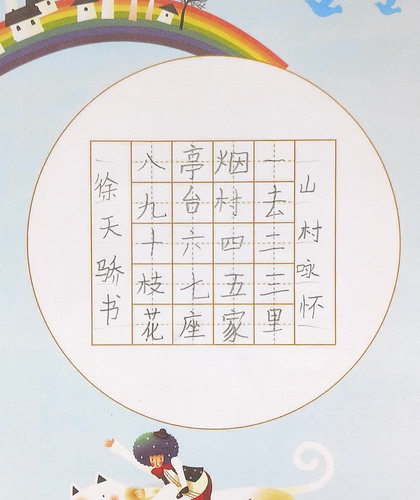 山村咏怀
一去二三里
烟村四五家
亭台六七座
八九十枝花
徐天骄书